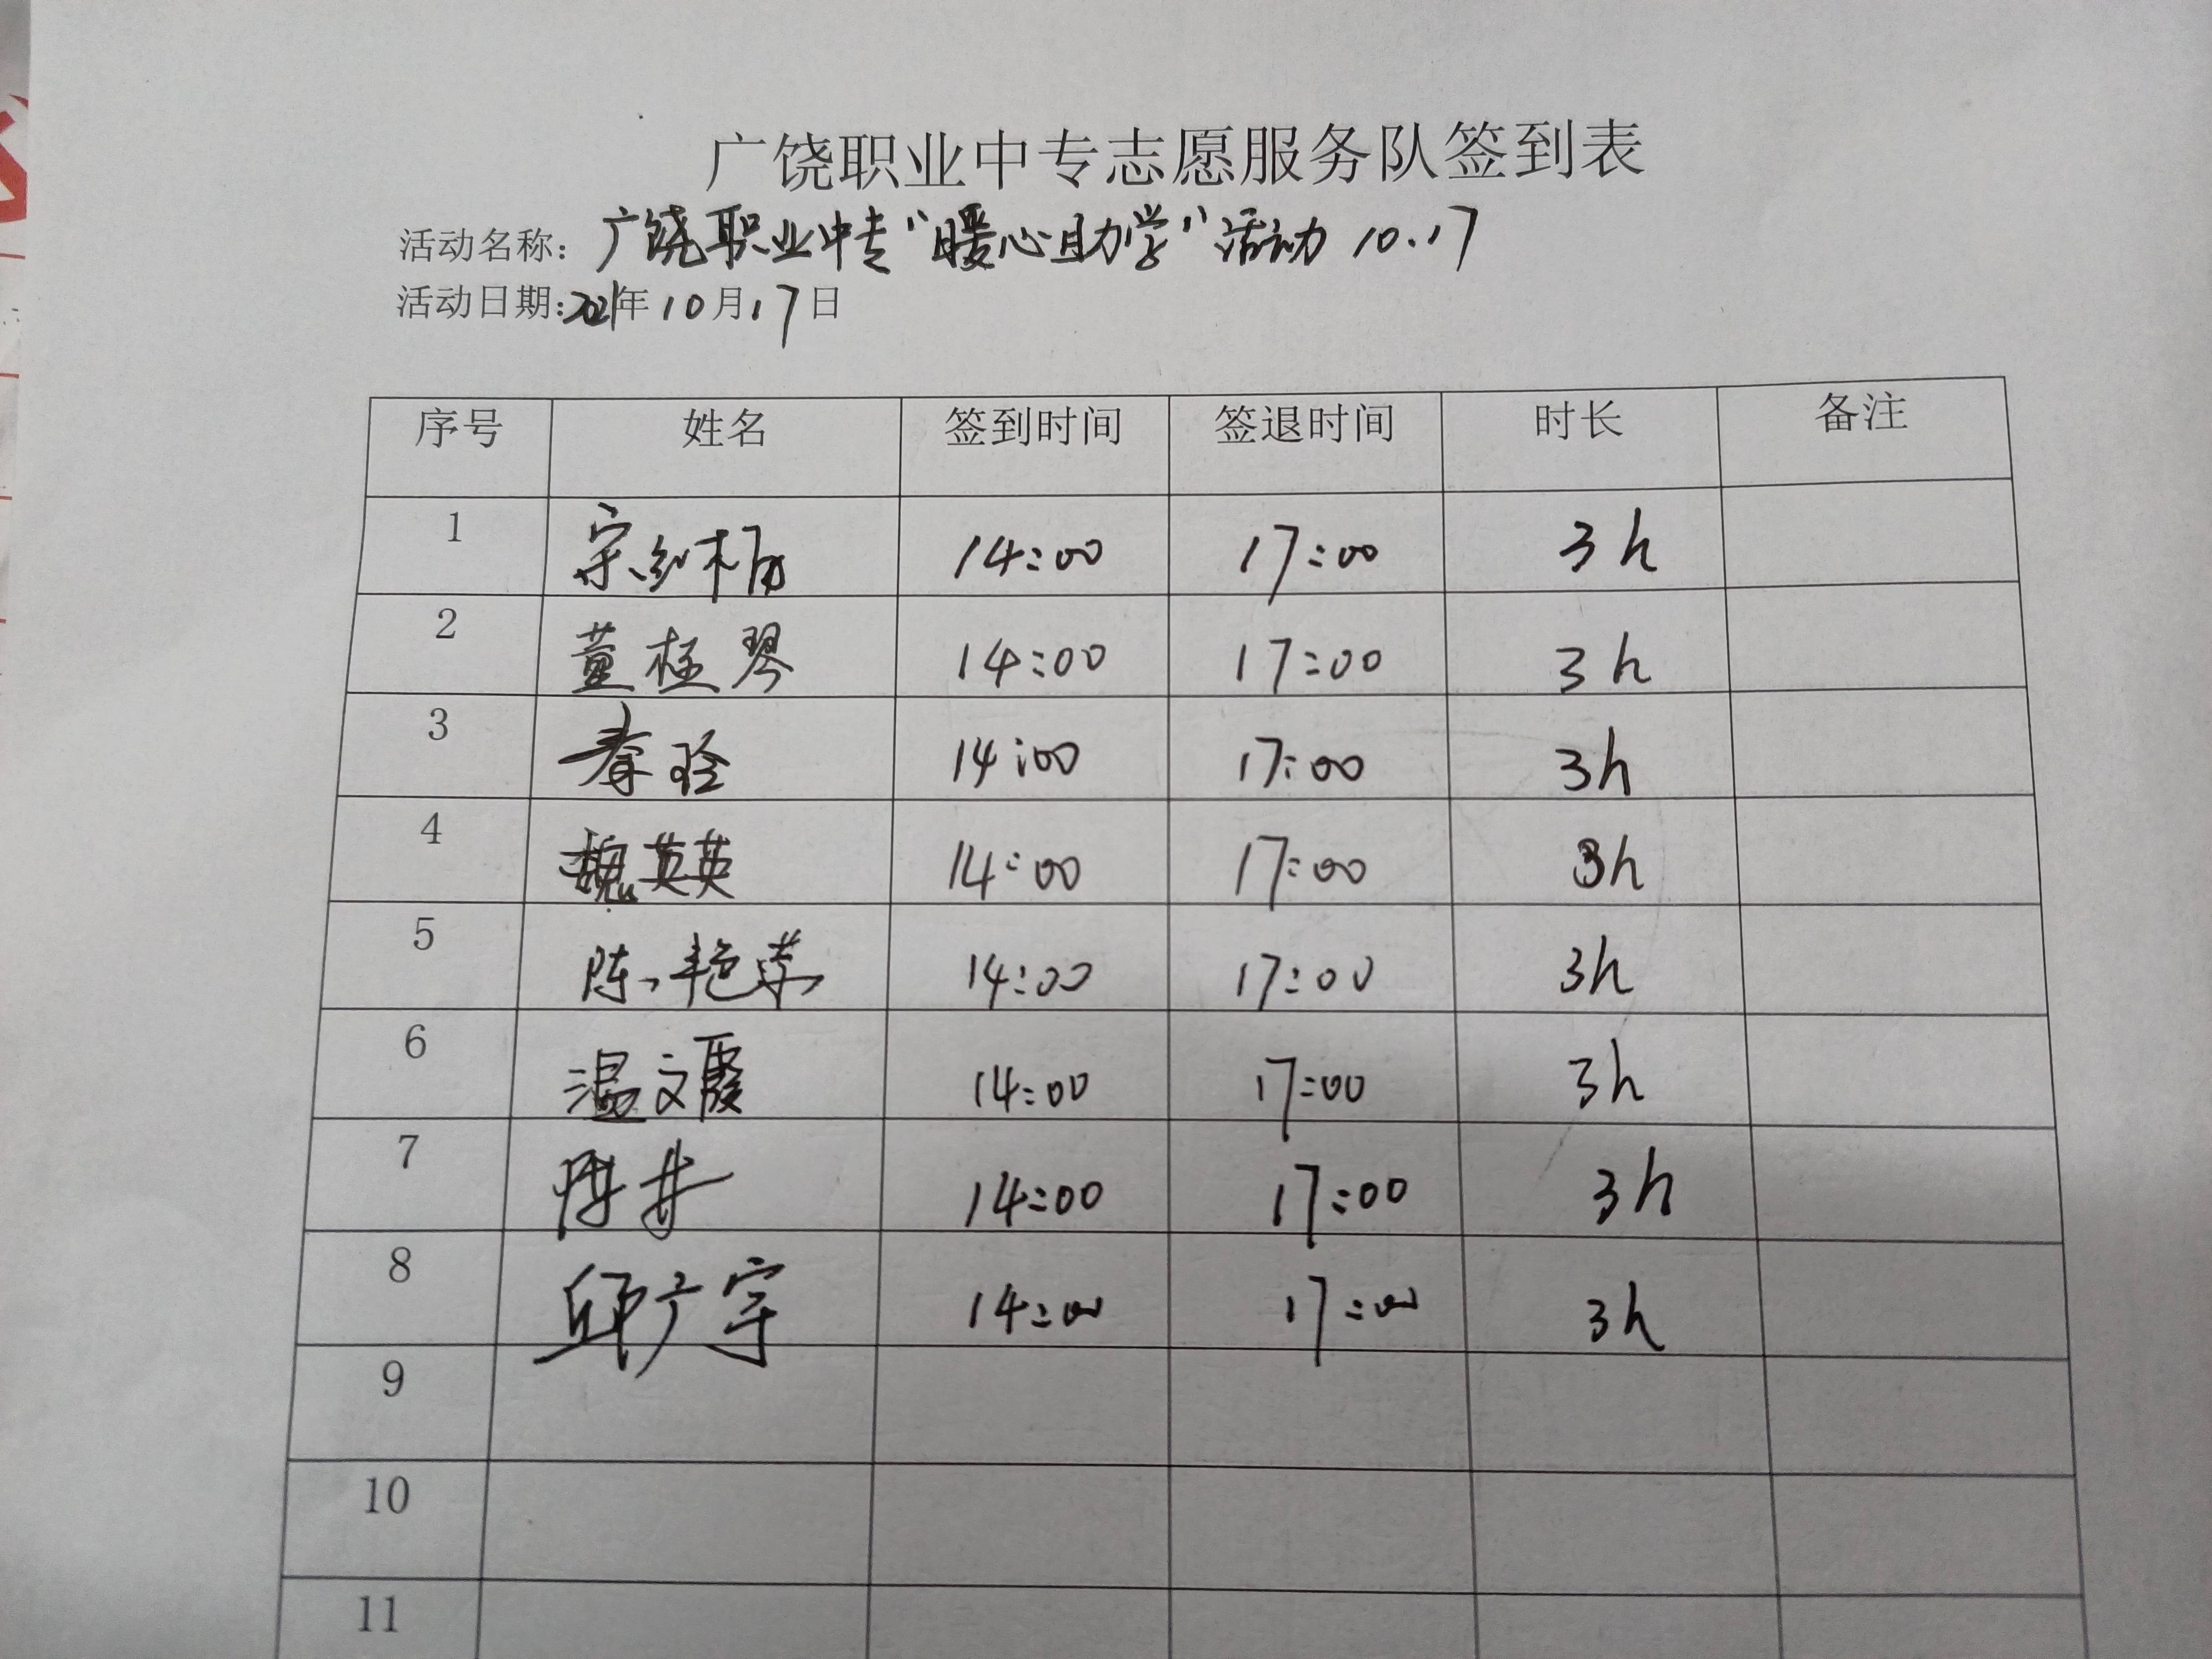 广饶职业中专志愿服务队签到表
活动名称：广饶职业中专“暖心助学”活动 10.17
活动日期：2021年10月17日
序号 姓名 签到时间 签退时间 时长 备注
1 宗 14:00 17:00 3h
2 董桂琴 14:00 17:00 3h
3 秦玲 14:00 17:00 3h
4 魏英英 14:00 17:00 3h
5 陈艳荣 14:00 17:00 3h
6 温文霞 14:00 17:00 3h
7 14:00 17:00 3h
8 邱广宇 14:00 17:00 3h
9
10
11